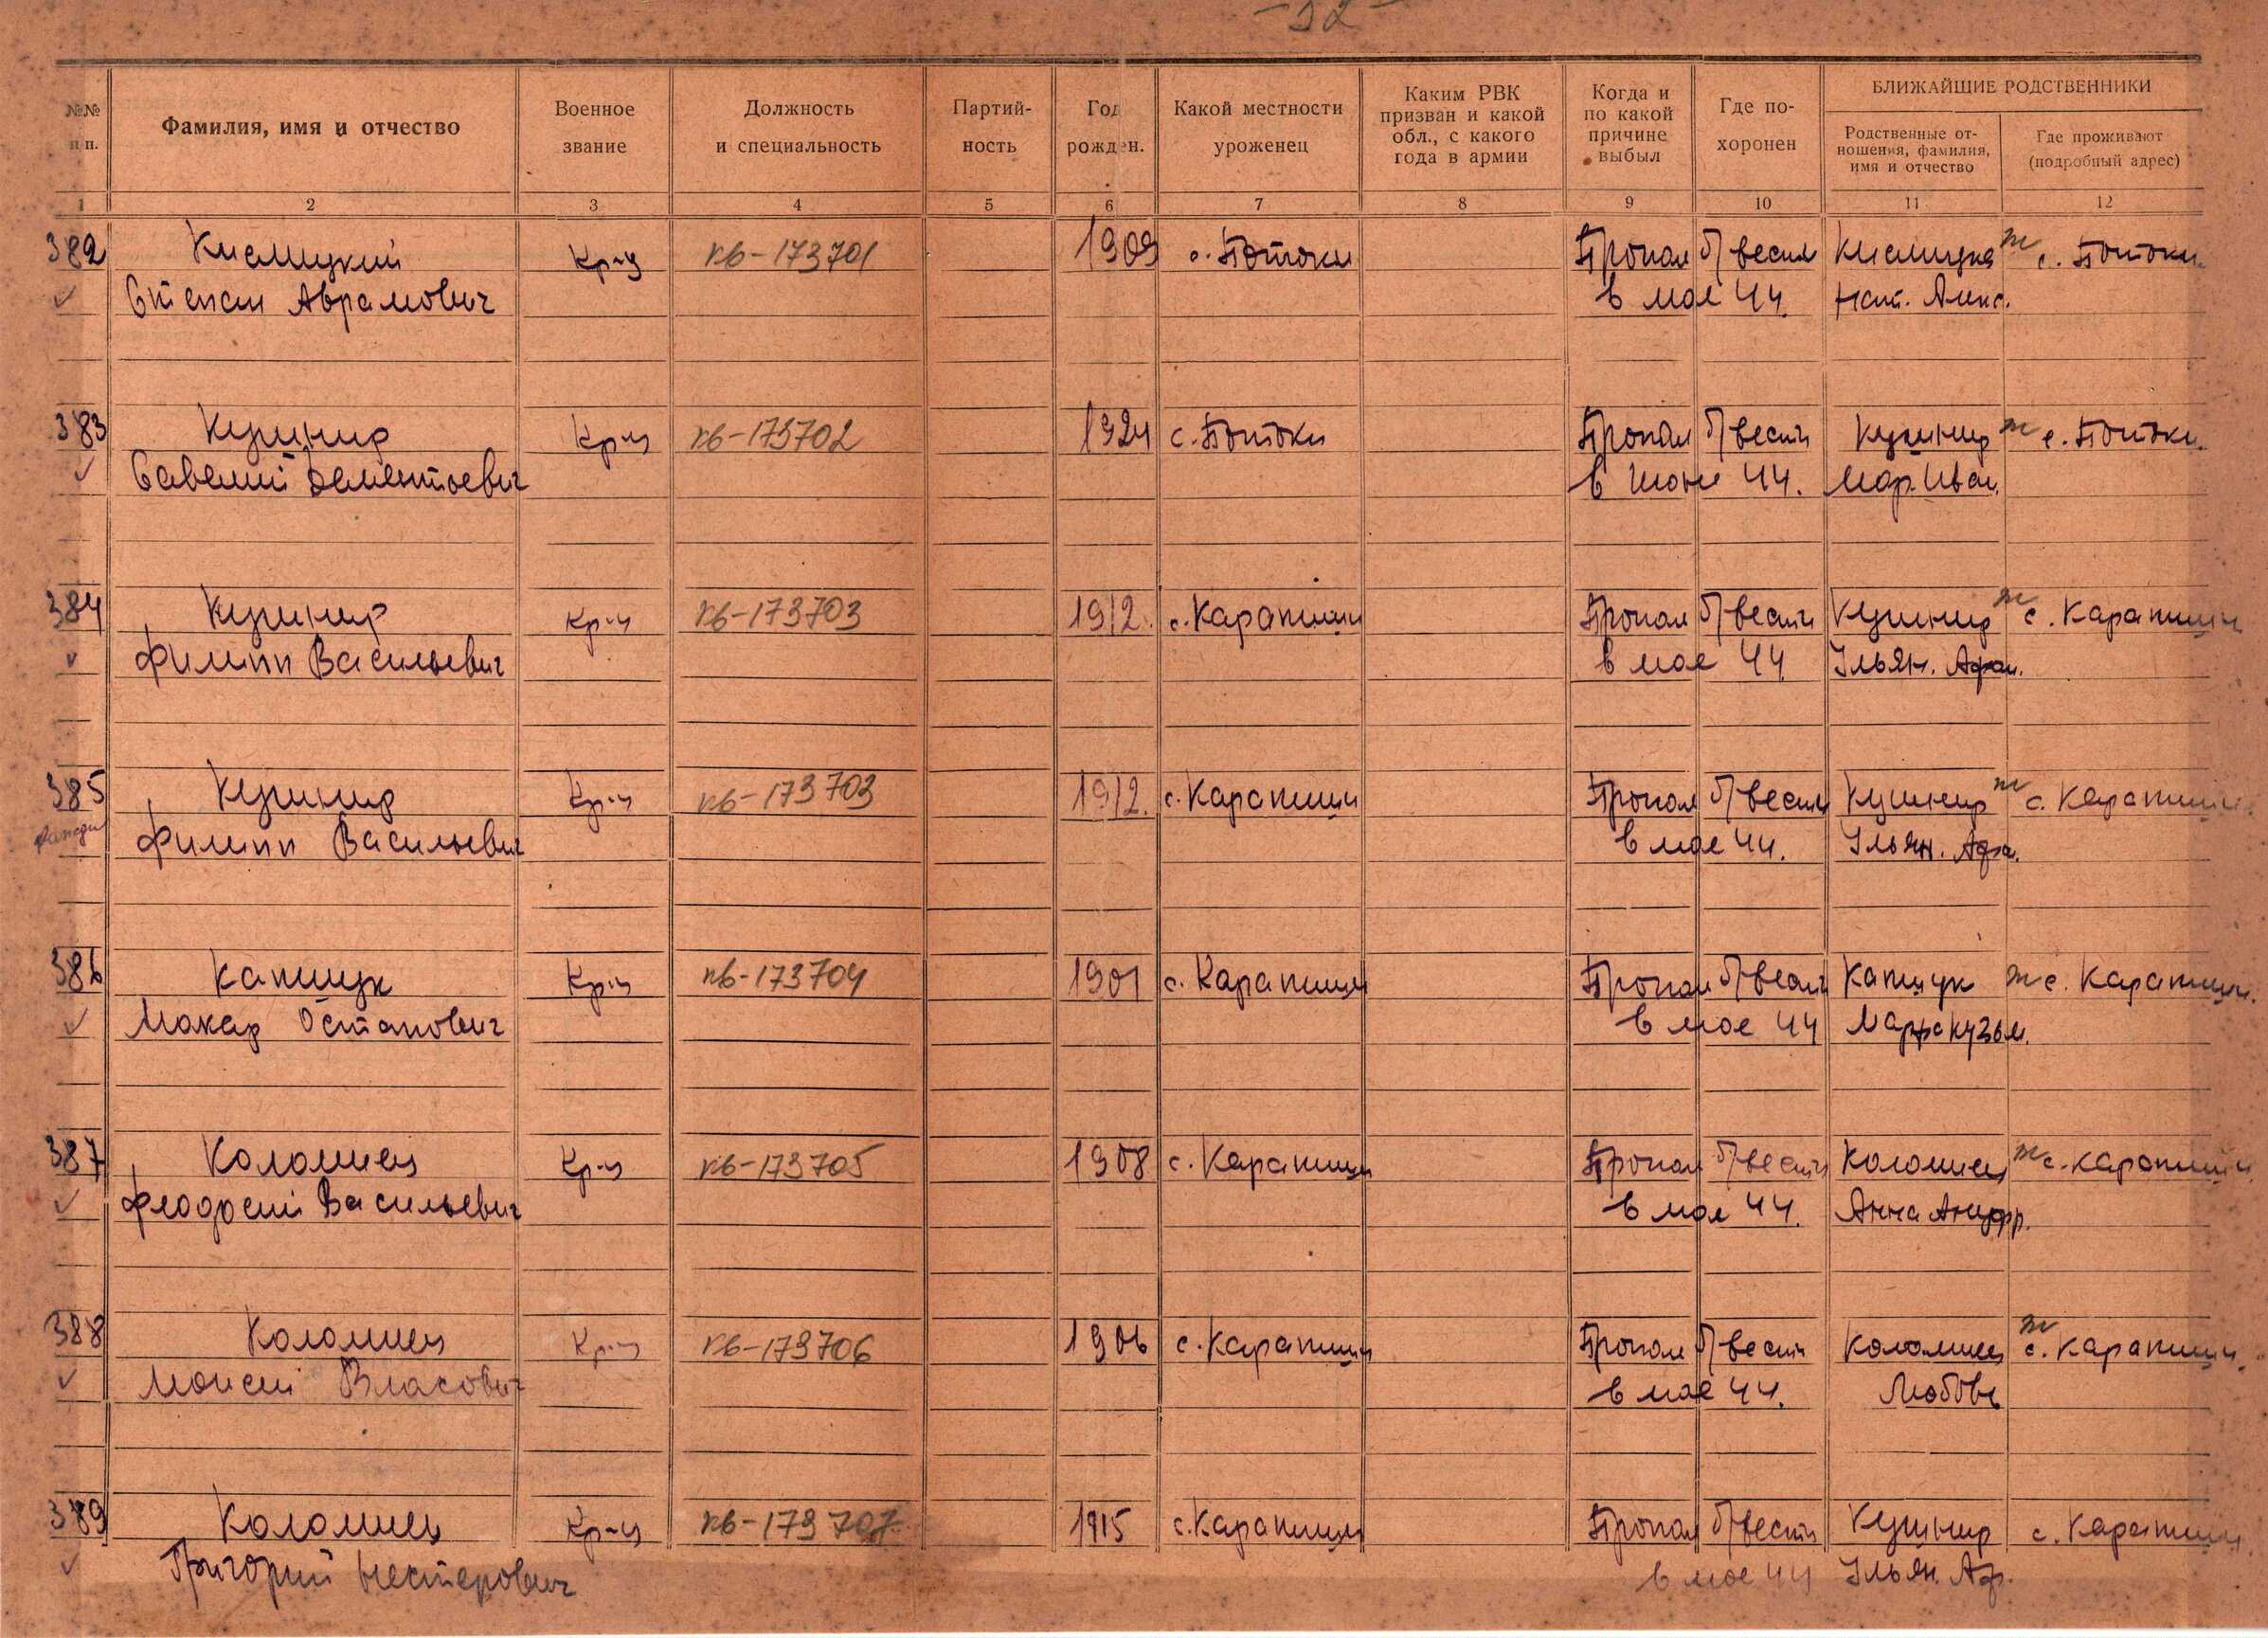 - 32 -
№№ п п.
Фамилия, имя и отчество
Военное звание
Должность и специальность
Партий-ность
Год рожден.
Какой местности уроженец
Каким РВК призван и какой обл., с какого года в армии
Когда и по какой причине выбыл
Где по-хоронен
БЛИЖАЙШИЕ РОДСТВЕННИКИ
Родственные от-ношения, фамилия, имя и отчество
Где проживают (подробный адрес)
1 2 3 4 5 6 7 8 9 10 11 12
382 Кислицкий Кр-ц кв-173701 1909 с. Потоки Пропал б/вести Кислицка ж с. Потоки
Степан Аврамович в мае 44. Нат. Алекс.
383 Кушнир Кр-ц кв-173702 1924 с. Потоки Пропал б/вести Кушнир ж с. Потоки.
Савелий Дементьевич в июне 44. Мар. Иван.
384 Кушнир кр-ц кв-173703 1912. с. Карапиши Пропал б/вести Кушнир ж с. Карапиши
Филипп Васильевич в мае 44 Ульян. Афан.
385 Кушнир Кр-ц кв-173703 1912. с. Карапиши Пропал б/вести Кушнир ж с. Карапиши
Филипп Васильевич в мае 44. Ульян. Афа.
386 Капшук Кр-ц кв-173704 1901 с. Карапиши Пропал б/вести Капшук ж с. Карапиши.
Макар Остапович в мае 44 Марфа Кузьм.
387 Коломиец Кр-ц кв-173705 1908 с. Карапиши Пропал б/вести Коломиец ж с. Карапиши
Феодосий Васильевич в мае 44. Анна
388 Коломиец Кр-ц кв-173706 1906 с. Карапиши Пропал б/вести Коломиец ж с. Карапиши.
Моисей Власович в мае 44. Любовь
389 Коломиец Кр-ц кв-173707 1915 с. Карапиши Пропал б/вести Кушнир с. Карапиши
Григорий Нестерович в мае 44 Ульян. Аф.